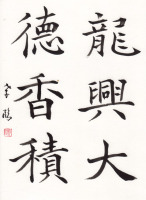 龍興大
德香積